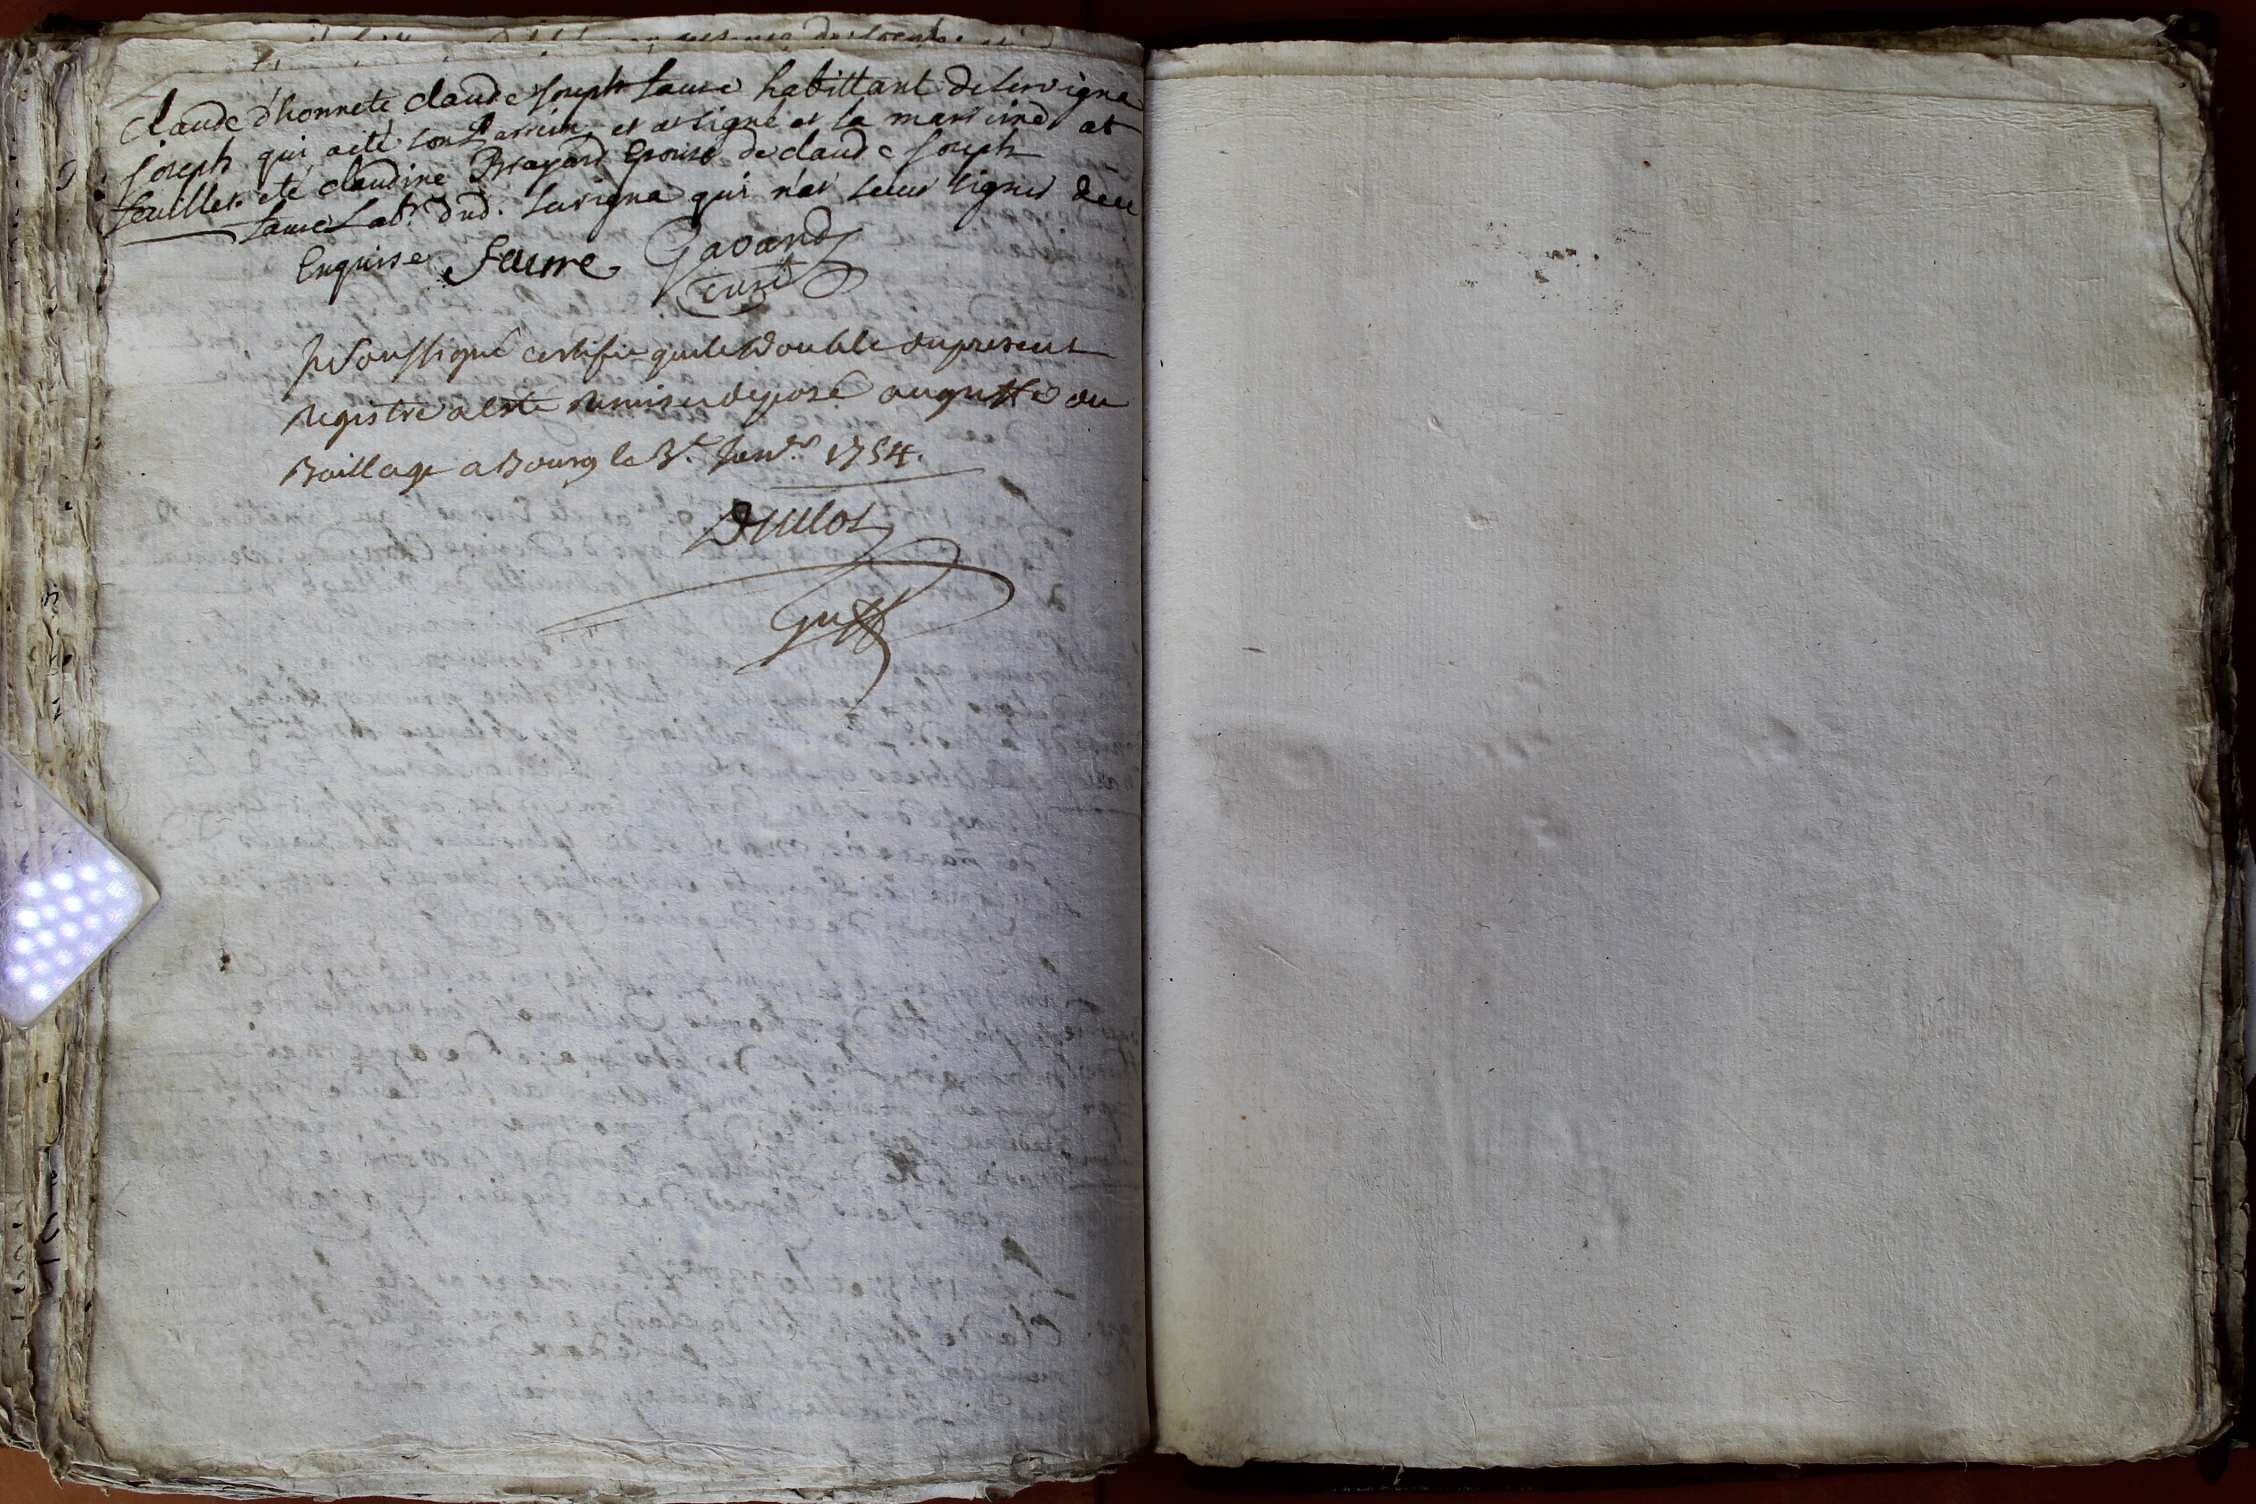 Claude d'honnete Claude Joseph faure habittant de servigna
Joseph qui a eté son parrein, et at signé et la marreine at
feuillet eté Claudine Brayard Epouse de Claude Joseph
faure Lab.r dud. servigna qui n'at sceu signer de ce
Enquise. faure Gavand
curé
Je soussigné certifie que le double du present
registre a esté remis et deposé au greffe du
Baillage a Bourg le 3.e Janv.er 1754.
greff